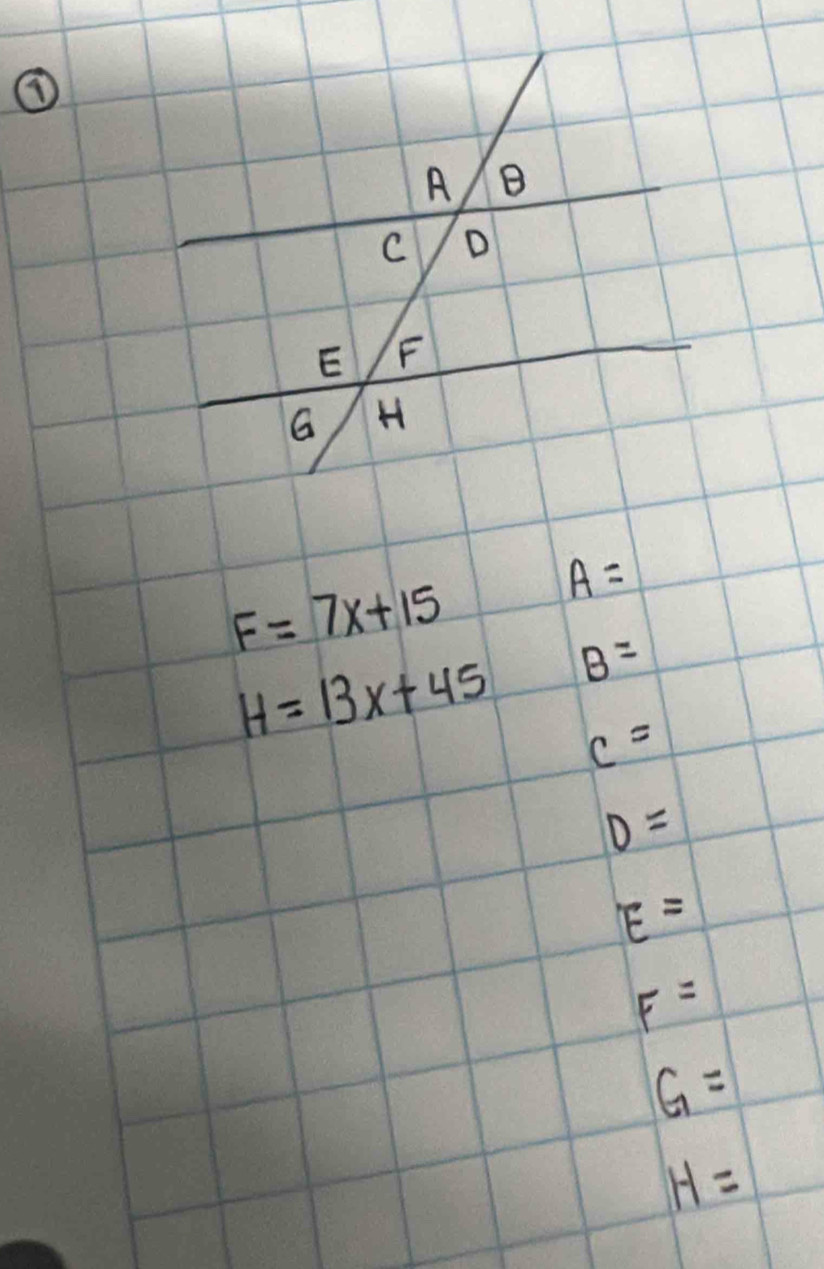 ①
A B
C D
E F
G H
F = 7x+15
H = 13x+45
A =
B =
C =
D =
E =
F =
G =
H =